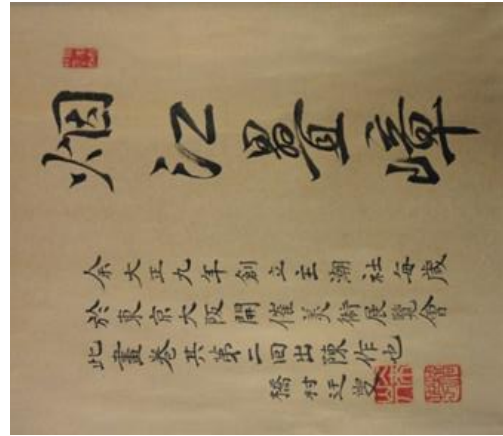 烟江疊嶂
余大正九年創立主潮社每歲
於東京大阪開催美術展覽會
此畫卷其第二回出陳作也
橋村迂叟